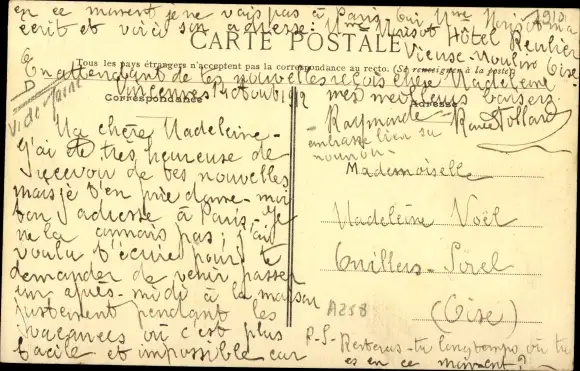 en ce moment je ne vais pas à Paris car Mme Morisot m'a
écrit et voici son adresse: Mme Morisot Hôtel Reulier
Vieux-Moulin Oise
CARTE POSTALE
Tous les pays étrangers n'acceptent pas la correspondance au recto. (Se renseigner à la poste)
En attendant de tes nouvelles reçois chère Madeleine
mes meilleurs baisers
Raymonde Renée Follard
embrasse bien ta
nounou
Correspondance
Adresse
Vincennes 14 Août 1912
Ma chère Madeleine
J'ai été très heureuse de
recevoir de tes nouvelles
mais je t'en prie donne-moi
ton adresse à Paris, je
ne la connais pas; j'ai
voulu t'écrire pour te
demander de venir passer
un après-midi à la maison
justement pendant les
vacances où c'est plus
facile et impossible car
Mademoiselle
Madeleine Noël
Cuillers-Sorel
(Oise)
A258
P.S- Resteras-tu longtemps où tu
es en ce moment?